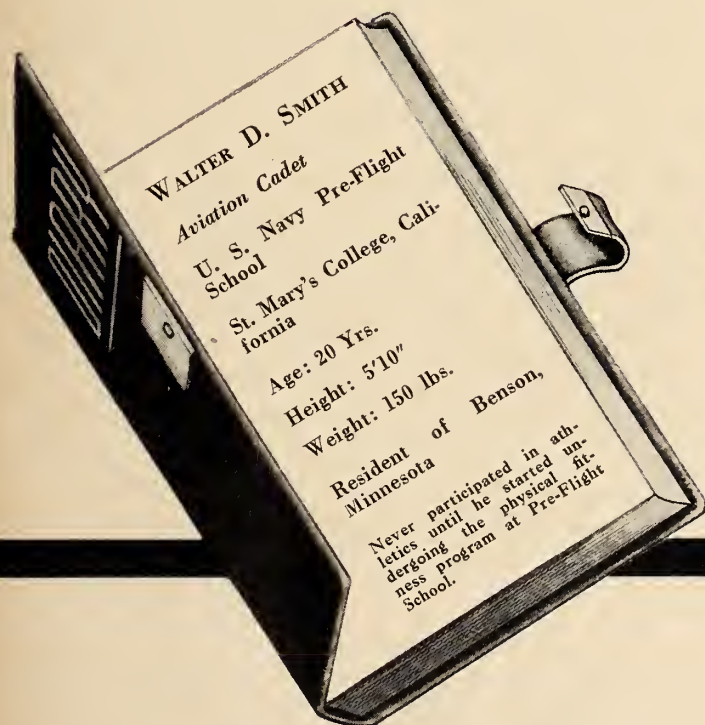 WALTER D. SMITH
Aviation Cadet
U. S. Navy Pre-Flight
School
St. Mary's College, Cali-
fornia
Age: 20 Yrs.
Height: 5'10"
Weight: 150 lbs.
Resident of Benson,
Minnesota
Never participated in ath-
letics until he started un-
dergoing the physical fit-
ness program at Pre-Flight
School.